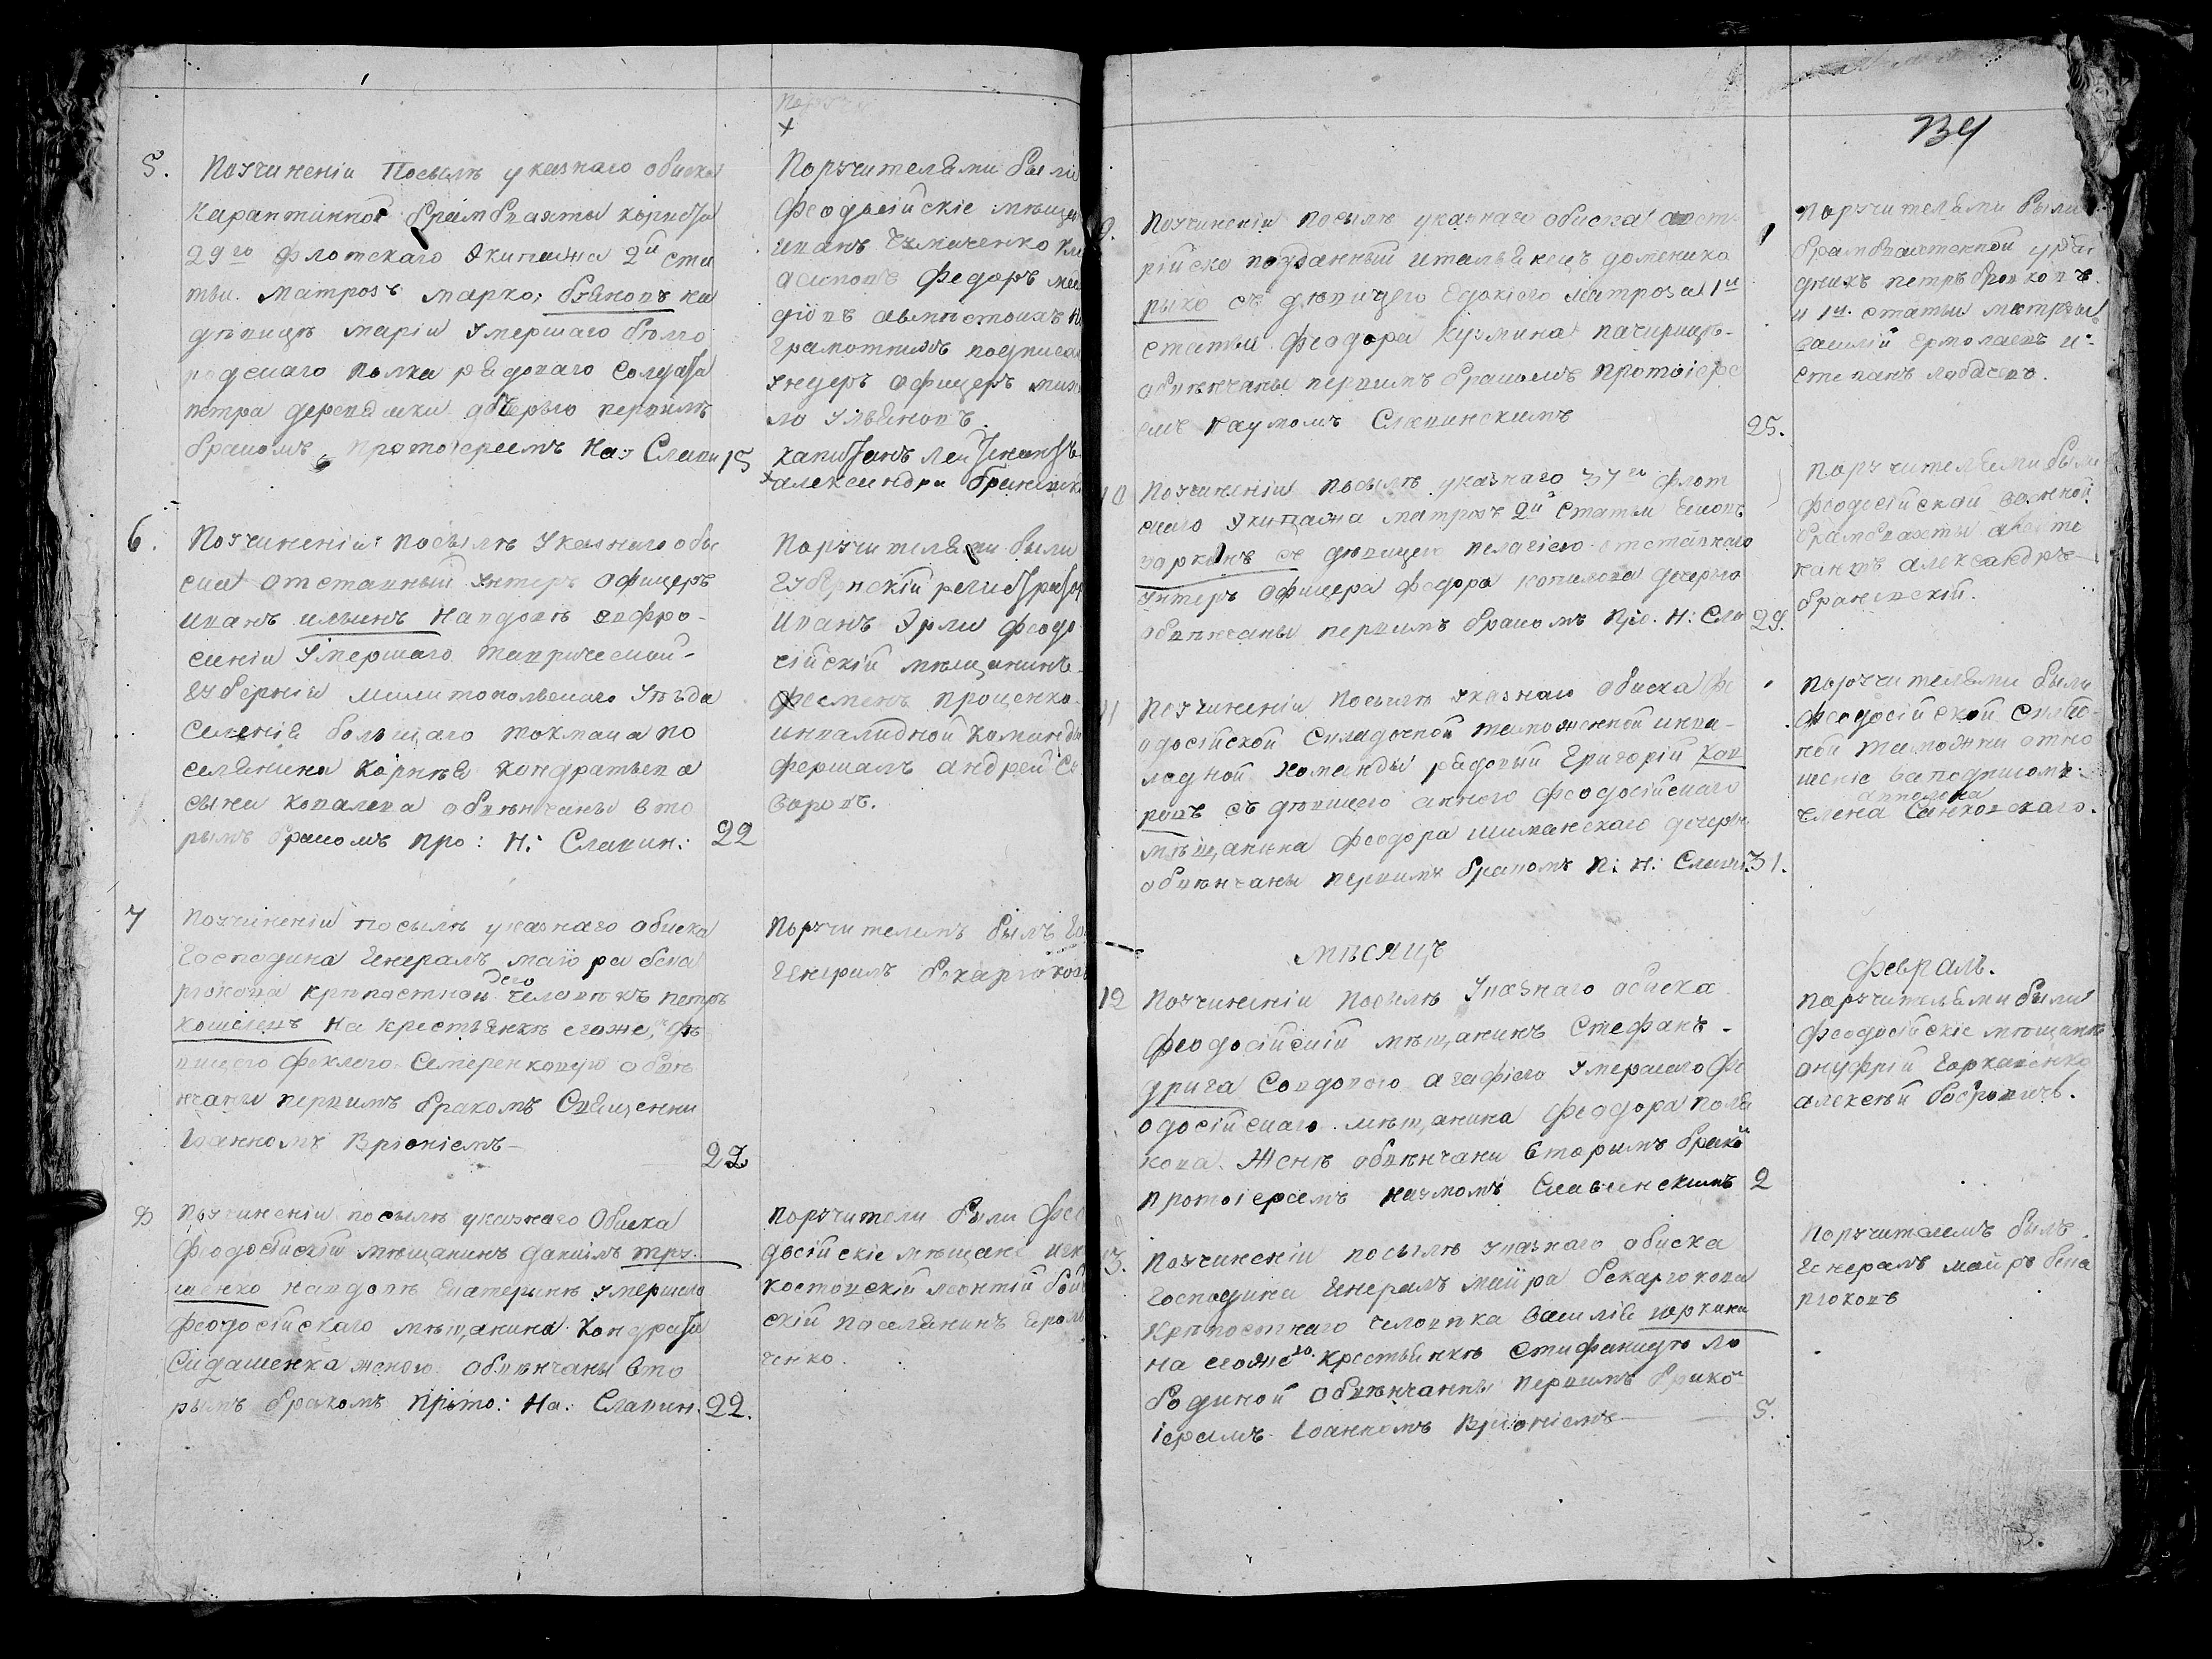 5.
Поучиненіи Посылѣ указнаго обыска
карантинной брамбвахты корнета
29го флотскаго Экипажа 2й ста
тьи матрозъ марко, бѣяновъ на
дѣвицѣ маріи Умершаго бѣлго
родскаго полка рядоваго солдата
петра деревянки дочерью первымъ
бракомъ протоіереемъ На: Слави
15
Поручителями были
Феодосійскіе мѣщан
иванъ
федоръ
грамотнымъ подписал
Ундеръ Офицеръ миха
ло Ульяновъ.
капитанъ лейтенантъ
александри браневск
6.
Поучиненіи посылѣ Указнаго обы
ска отставный Унтеръ Офицеръ
иванъ ильинъ На вдовѣ евфро-
синіи Умершаго таврической
губерніи милитопольскаго Уѣзда
Селенія большаго токмака по
селянина Корнѣя кондратьева
сына ковалева обвѣнчаны вто
рымъ бракомъ про: Н: Славин:
22
Поручителями были
Губернскій регистратор
Иванъ Эрли феодо
сійскій мѣщанинъ
семенъ проценко
инвалидной команды
фершалъ андрей Су
воровъ.
7
Поучиненіи посылѣ указнаго обыска
Господина Генералъ маіора бека
рюкова крѣпостной его человѣкъ петръ
кошелевъ на крестьянкѣ егоже, дѣ
вицею феклою Семеренковую обвѣ
нчаны первымъ бракомъ Священни
Іоанномъ Вріоніемъ
22
Поручителемъ былъ Го
Генералъ бекарюковъ
8
Поучиненіи посылѣ указнаго Обыска
феодосійскій мѣщанинъ даніилъ тру
шенко на вдовѣ екатеринѣ умершаго
феодосійскаго мѣщанина кондрата
Сидашенка женою обвѣнчаны вто
рымъ бракомъ прото: На: Славин.
22.
поручители были Фео
досійскіе мѣщане
костовскій леонтій
скій поселянинъ
ченко.
134
9.
Поучиненіи посылѣ указнаго обыска австр
рійско подданный итальянецъ доменико
рыко съ дѣвицею Евдокіею матроза 1й
статьи феодора Кузмина пачирицѣ-
обвѣнчаны первымъ бракомъ Протоіере
емъ Наумомъ Славинскимъ
25.
Поручителями были
брамбвахтенной уряд
дникъ петръ броковъ
и 1й статьи матрозы
василій Ермолаевъ и
степанъ лабасевъ.
10
Поучиненіи посылѣ указнаго 37го флот
скаго Экипажа матрозъ 2й статьи
съ дѣвицею пелагіею отставнаго
Унтеръ Офицера федора копылова дочерью
обвѣнчаны первымъ бракомъ Про. Н: Сла
29.
поручителями были
феодосійской военной
брамбвахты лейте
нантъ александръ
браневскій.
11
Поучиненіи посылѣ указнаго обыска фе
одосійской Складочной таможенной инва-
лидной команды рядовый Григорій ков
ровъ съ дѣвицею анною феодосійскаго
мѣщанина феодора шиманскаго дочерью
обвѣнчаны первымъ бракомъ П: Н: Славин.
31.
поручителями были
феодосійской складо-
чной таможни отно
шеніе заподписомъ
апполона
члена Санковскаго.
мѣсяцъ
Февраль.
12
Поучиненіи посылѣ Указнаго обыска
феодосійскій мѣщанинъ Стефанъ
дрига Совдовою агафіею Умершаго Фе
одосійскаго мѣщанина феодора поля
кова. Женѣ обвѣнчаны вторымъ брако
протоіереемъ наумомъ Славинскимъ
2
поручителями были
феодосійскіе мѣщане
онуфрій Горкавенко
алексѣй бобровичъ.
13.
Поучиненіи посылѣ указнаго обыска
Господина Генералъ маіора бекарюкова
крѣпостнаго человѣка василія юркина
на егоже крестьянкѣ стифанидѣ ло
бодиной обвѣнчаны первымъ брако
іереемъ Іоанномъ Вріоніемъ
5.
Поручителемъ былъ
Генералъ маіоръ бека
рюковъ